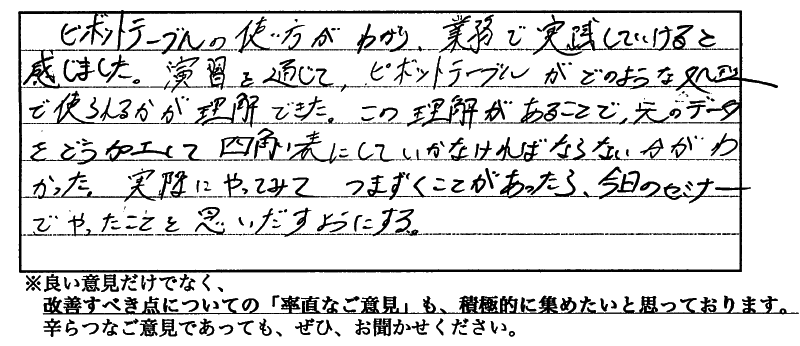 ピボットテーブルの使い方がわかり、業務で実践していけると
感じました。演習を通じて、ピボットテーブルがどのような処理
で使られるかが理解できた。この理解があることで、元のデータ
をどう加工して四角い表にしていかなければならないかがわ
かった。実際にやってみてつまずくことがあったら、今日のセミナー
でやったことを思いだすようにする。
※良い意見だけでなく、
改善すべき点についての「率直なご意見」も、積極的に集めたいと思っております。
辛らつなご意見であっても、ぜひ、お聞かせください。